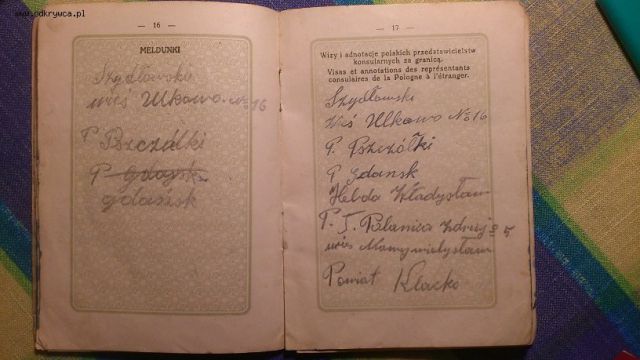 www.odkrywca.pl
— 16 —
MELDUNKI
Szydłowski
wieś Ulkowo No 16
P Pszczółki
P Gdańsk
gdańsk
— 17 —
Wizy i adnotacje polskich przedstawicielstw
konsularnych za granicą.
Visas et annotations des représentants
consulaires de la Pologne à l'étranger.
Szydłowski
Wieś Ulkowo No 16
P. Pszczółki
P Gdańsk
Hebda Władysław
P. Polanica Zdrój
wieś
Powiat Kłacko